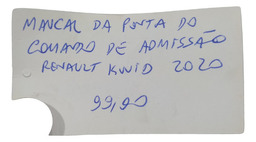 MANCAL DA PONTA DO
COMANDO DE ADMISSÃO
RENAULT KWID 2020
99,90